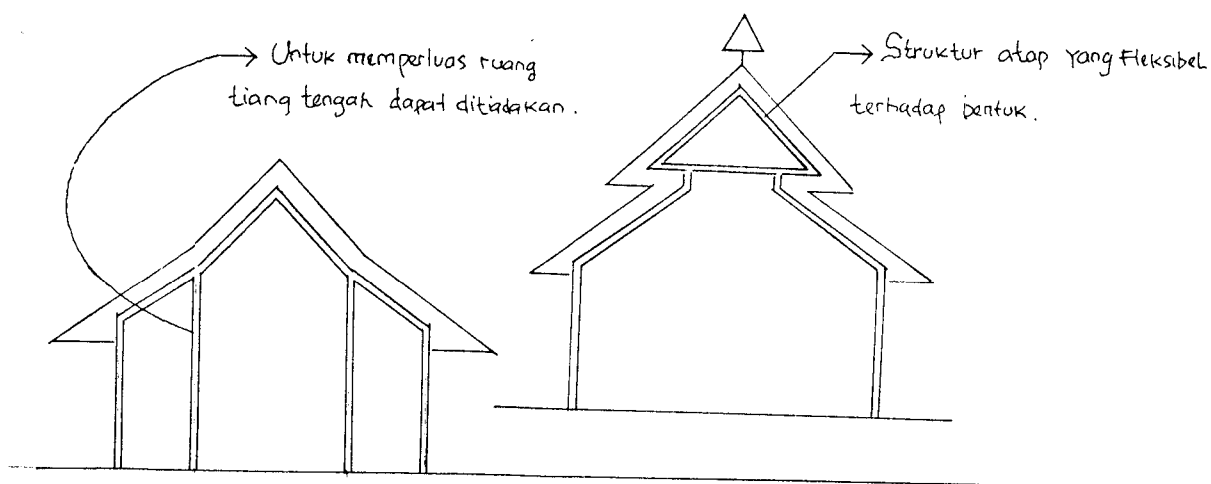 Untuk memperluas ruang
tiang tengah dapat ditiadakan.
Struktur atap yang Fleksibel
terhadap bentuk.